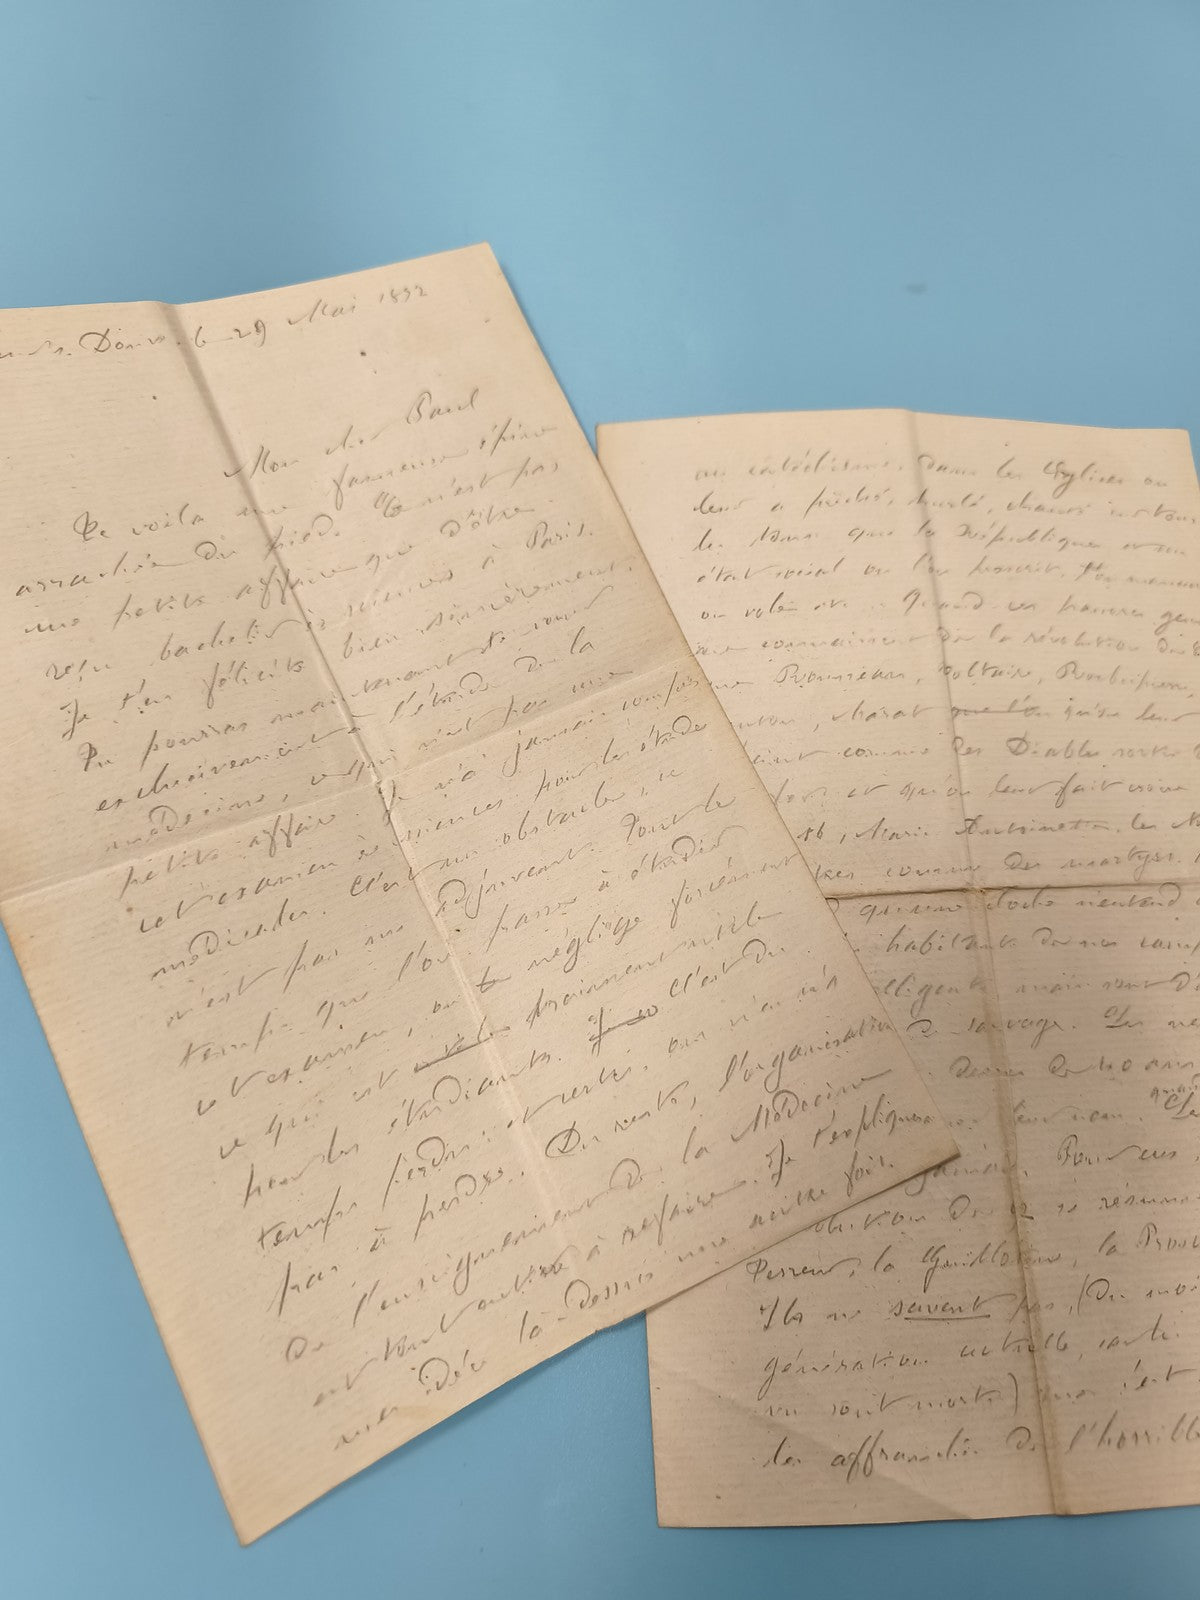 le 29 Mai 1832
Mon cher Paul
Te voilà une fameuse épine
arrachée du pied. Ce n'est pas
une petite affaire que d'être
reçu bachelier ès sciences à Paris.
Je t'en félicite bien sincèrement.
Tu pourras maintenant te vouer
exclusivement à l'étude de la
médecine, ce qui n'est pas une
petite affaire. Je n'ai jamais compris
cet examen ès sciences pour les études
médicales. C'est un obstacle, ce
n'est pas un adjuvant. Tout le
temps que l'on passe à étudier
cet examen, on néglige forcément
ce qui est vraiment utile
pour les étudiants. C'est du
temps perdu et certes, on n'en a
pas à perdre. Du reste, l'organisation
de l'enseignement de la Médecine
est tout entière à refaire. Je t'expliquerai
mes idées là-dessus une autre fois.
au catéchisme, dans les Eglises on
leur a prêché, hurlé, chanté sur tous
les tons que la République et son
état social où l'on
on vole etc. Quand ces pauvres gens
ne connaissent de la révolution
que Rousseau, Voltaire, Robespierre,
Marat que l'on qu'on leur
comme des Diables sortis
et qu'on leur fait croire
16, Marie Antoinette, les
comme des martyrs.
qu'une cloche n'entend
habitants de nos
mais sont
de sauvage. Les
de 40 ans
jamais. Pour eux,
de 92 se résume
Terreur, la Guillotine, la
Ils ne savent pas, (du moins
génération actuelle,
sont morts) que c'est
les affranchis de l'horrible